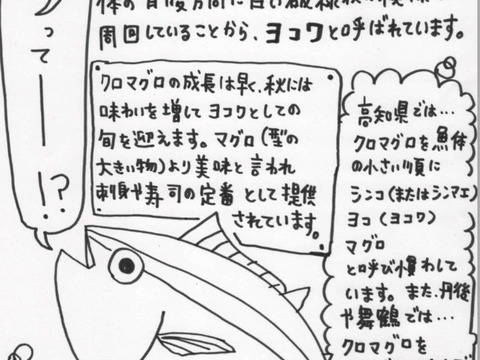 って――!?
周回していることから、ヨコワと呼ばれています。
クロマグロの成長は早く、秋には
味わいを増してヨコワとしての
旬を迎えます。マグロ(型の
大きい物)より美味と言われ
刺身や寿司の定番として提供
されています。
高知県では…
クロマグロを魚体
の小さい順に
シンコ(またはシンマエ)
ヨコ(ヨコワ)
マグロ
と呼び慣わして
います。また、丹後
や舞鶴では…
クロマグロを